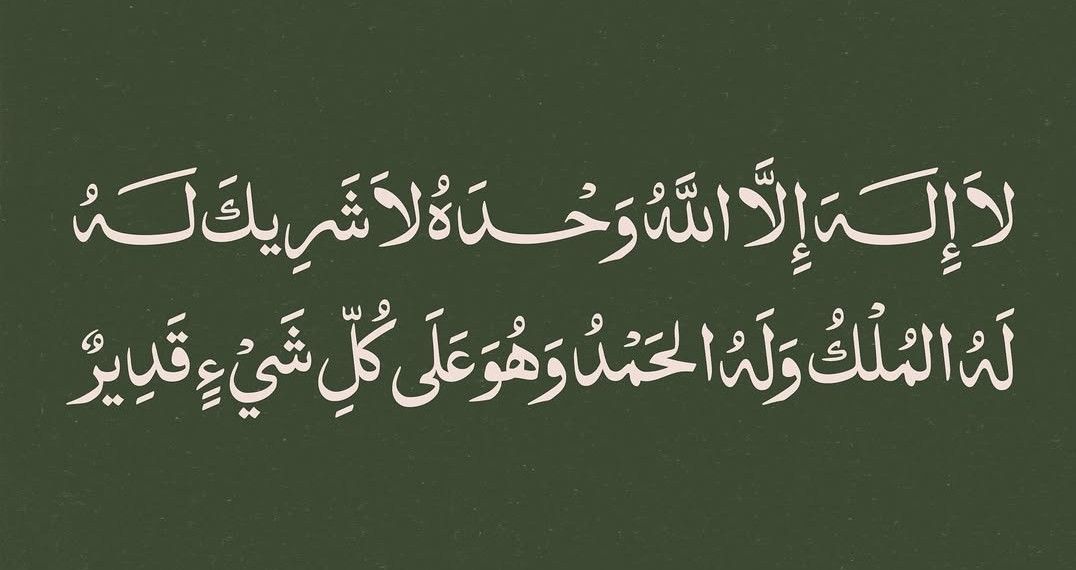 لَا إِلَهَ إِلَّا اللَّهُ وَحْدَهُ لَا شَرِيكَ لَهُ
لَهُ المُلْكُ وَلَهُ الحَمْدُ وَهُوَ عَلَى كُلِّ شَيْءٍ قَدِيرٌ